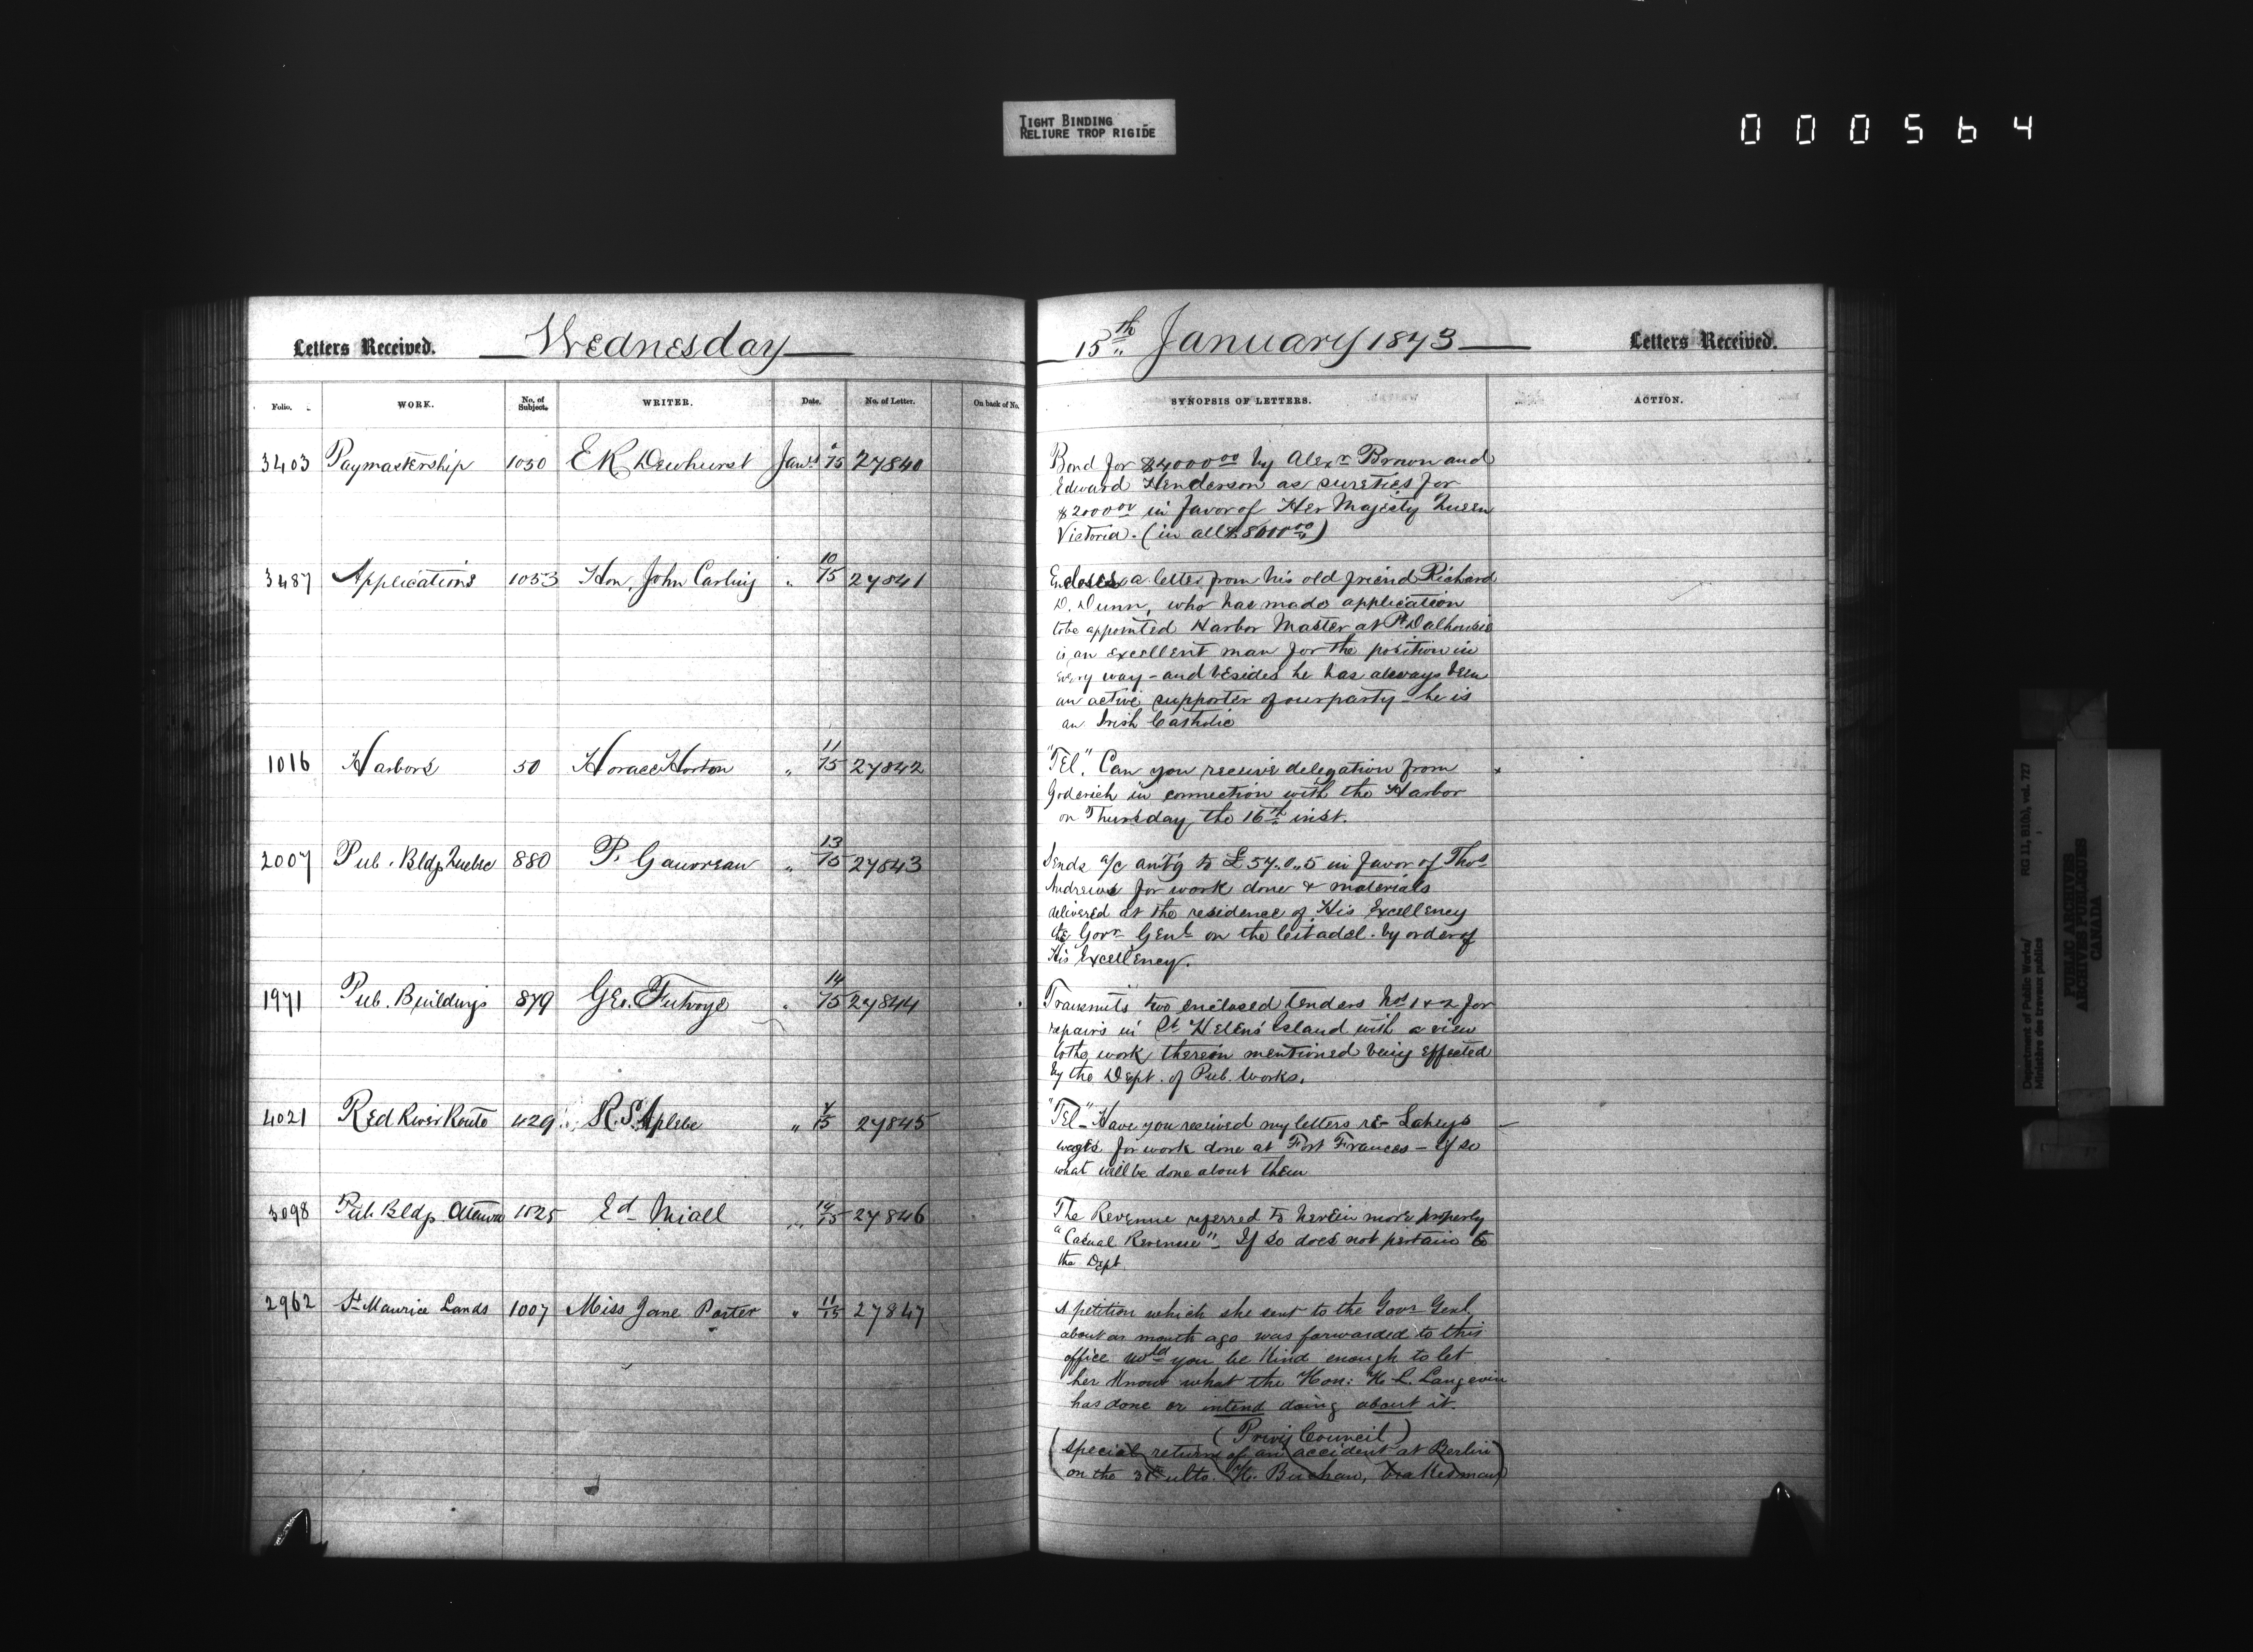 TIGHT BINDING
RELIURE TROP RIGIDE
000564
Letters Received. Wednesday
Folio. WORK. No. of Subject. WRITER. Date. No. of Letter. On back of No.
3403 Paymastership 1050 E K Dewhurst Jany 6/15 27840
3487 Applications 1053 Hon. John Carling " 10/15 27841
1016 Harbors 50 Horace Horton " 11/15 27842
2007 Pub. Bldgs Quebec 880 P. Gauvreau " 13/15 27843
1971 Pub. Buildings 879 Geo. Futvoye " 14/15 27844
4021 Red River Route 429 R. S. Aplebe " 7/15 27845
3098 Pub Bldgs Ottawa 1025 Ed Miall " 14/15 27846
2962 St Maurice Lands 1007 Miss Jane Porter " 11/15 27847
15th January 1873 Letters Received.
SYNOPSIS OF LETTERS. ACTION.
Bond for $4000 00 by Alexr Brown and
Edward Henderson as sureties for
$2000 00 in favor of Her Majesty Queen
Victoria. (in all $8000 00)
Encloses a letter from his old friend Richard
D. Dunn, who has made application
to be appointed Harbor Master at Pt Dalhousie
is an excellent man for the position in
every way - and besides he has always been
an active supporter of our party - he is
an Irish Catholic
"Tel." Can you receive delegation from
Goderich in connection with the Harbor
on Thursday the 16th inst.
Sends a/c amt'g to £57.0.5 in favor of Thos
Andrews for work done & materials
delivered at the residence of His Excellency
the Govr Genl on the Citadel. by order of
His Excellency.
Transmits two enclosed tenders Nos 1 & 2 for
repairs in St Helens Island with a view
to the work therein mentioned being effected
by the Dept. of Pub. Works.
"Tel" - Have you received my letters re - Laheys
wages for work done at Fort Frances - If so
what will be done about them
The Revenue referred to herein more properly
"Casual Revenue" - If so does not pertain to
the Dept
A petition which she sent to the Govr Genl.
about a month ago was forwarded to this
office wold you be kind enough to let
her know what the Hon: H. L. Langevin
has done or intend doing about it.
(Privy Council)
(Special return of an accident at Berlin
on the 31st ulto. H. Buchan, brakesman)
Department of Public Works/
Ministère des travaux publics
RG 11, B1(b), vol. 727
PUBLIC ARCHIVES
ARCHIVES PUBLIQUES
CANADA